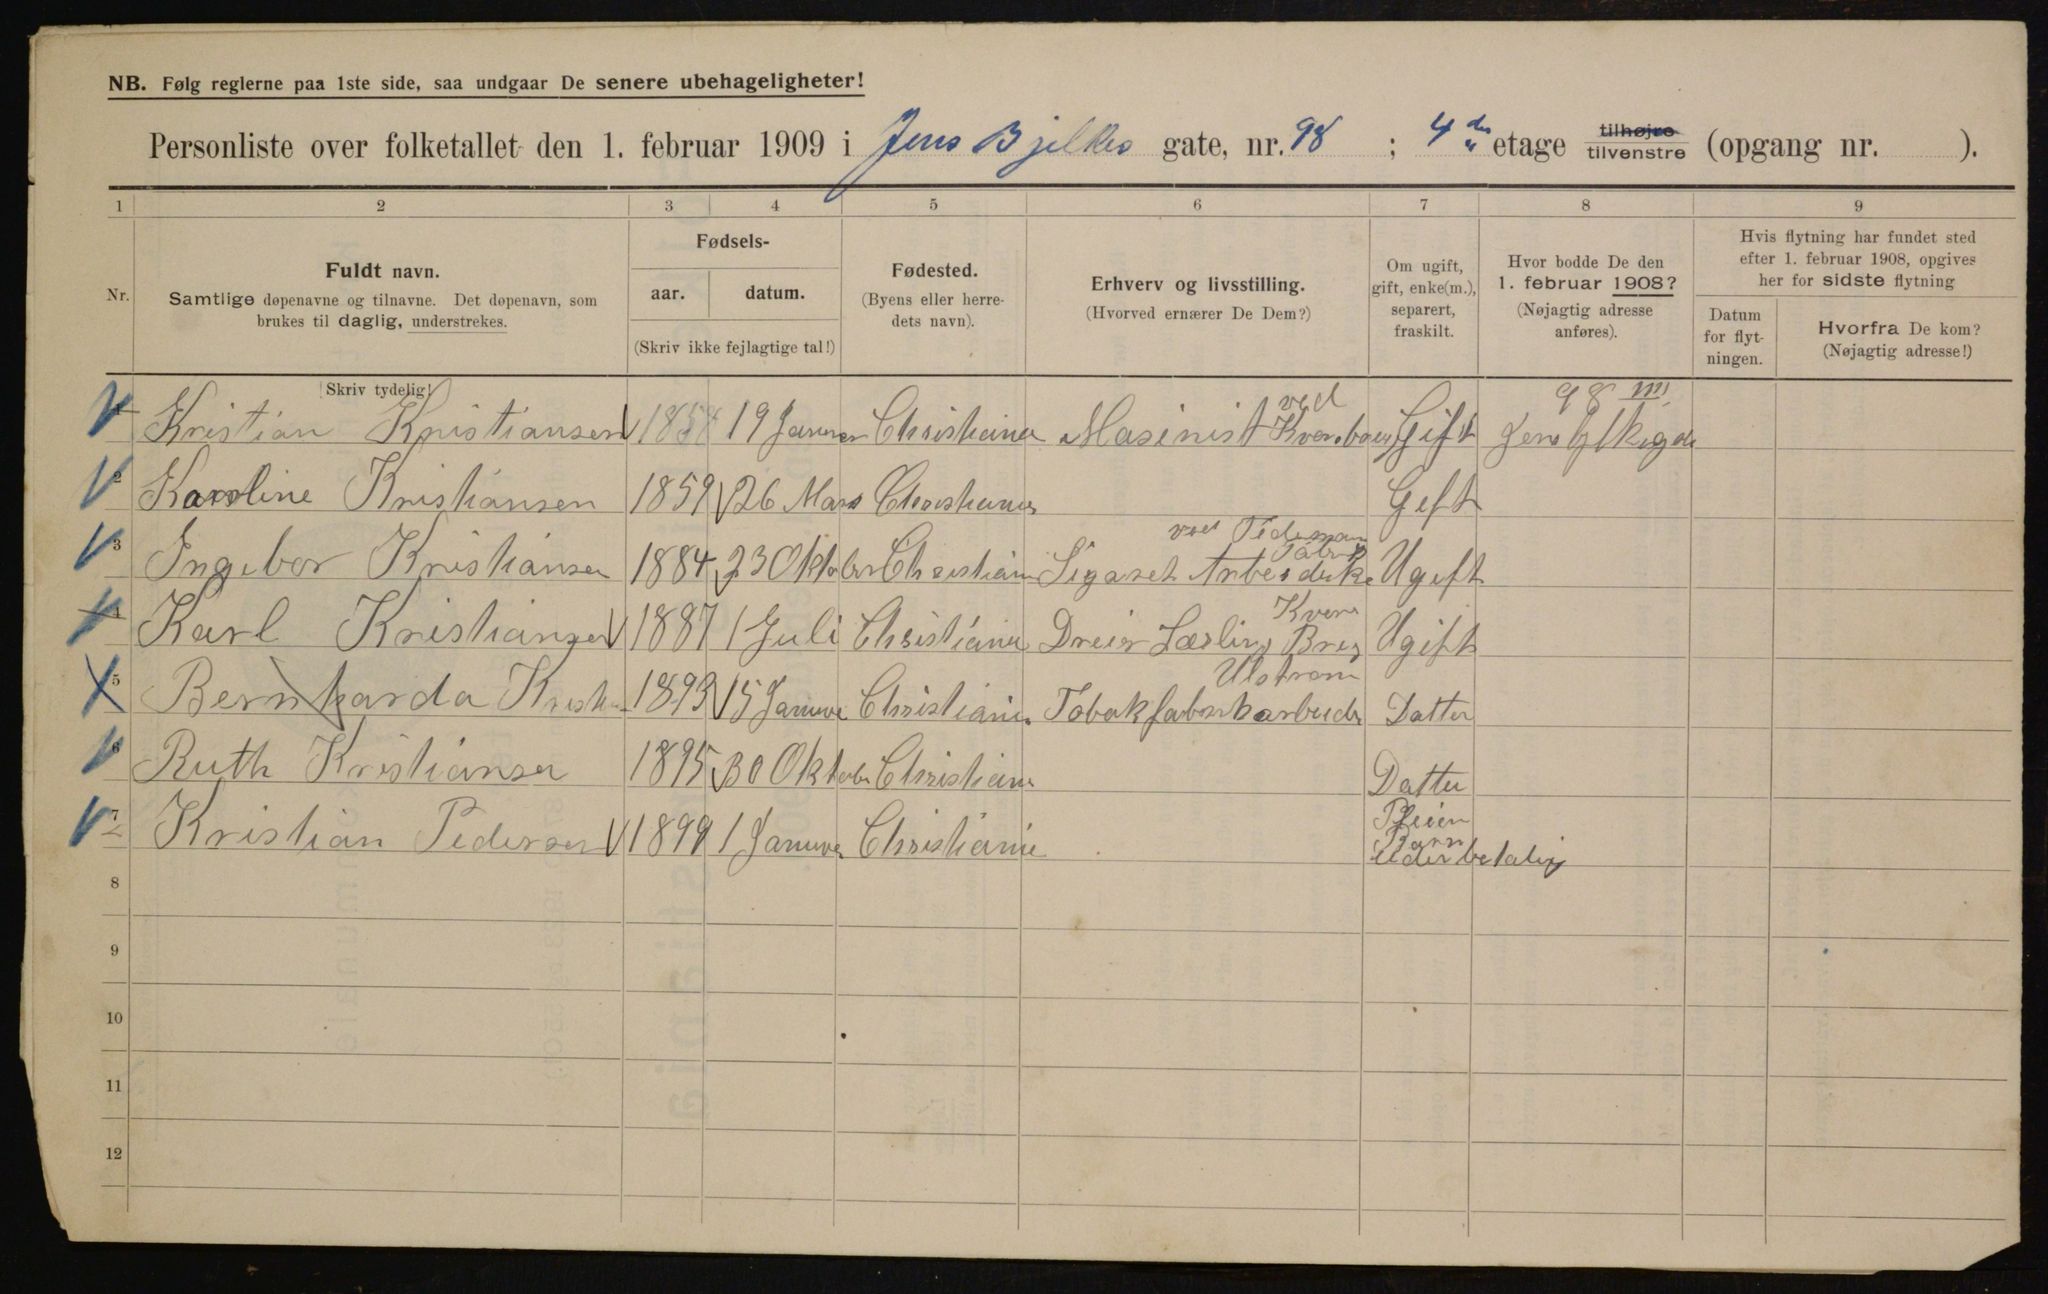 NB. Følg reglerne paa 1ste side, saa undgaar De senere ubehageligheter!
Personliste over folketallet den 1. februar 1909 i Jens Bjelkes gate, nr. 98 ; 4 de etage tilhøjre tilvenstre (opgang nr. ).
1 2 3 4 5 6 7 8 9
Nr.
Fuldt navn.
Samtlige døpenavne og tilnavne. Det døpenavn, som
brukes til daglig, understrekes.
Fødsels-
aar. datum.
(Skriv ikke fejlagtige tal!)
Fødested.
(Byens eller herre-
dets navn).
Erhverv og livsstilling.
(Hvorved ernærer De Dem?)
Om ugift,
gift, enke(m.),
separert,
fraskilt.
Hvor bodde De den
1. februar 1908?
(Nøjagtig adresse
anføres).
Hvis flytning har fundet sted
efter 1. februar 1908, opgives
her for sidste flytning
Datum
for flyt-
ningen.
Hvorfra De kom?
(Nøjagtig adresse!)
Skriv tydelig!
ved 98 III
1 Kristian Kristiansen 1858 19 Januar Christiania Masinist Gift Jens
2 Karoline Kristiansen 1859 26 Mars Christiania Gift
ved Tideman
Fabrik
3 Ingebor Kristiansen 1884 23 Oktober Christiania Sigaret Arbeiderske Ugift
Kvern
4 Karl Kristiansen 1887 1 Juli Christiania Dreier Lærling Brug Ugift
Ulstrøm
5 Bernharda Kristi 1893 15 Januar Christiania Tobakfabrikarbeider Datter
6 Ruth Kristiansen 1895 30 Oktober Christiania Datter
7 Kristian Pedersen 1899 1 Januar Christiania Pleien
Barn
uden betaling
8
9
10
11
12